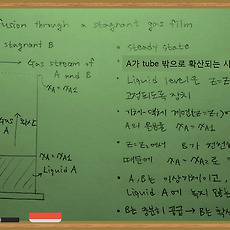 fusion through a stagnant gas film
stagnant B
Gas stream of
A and B
xA = xA2
Gas
A
확산
xA = xA1
Liquid A
• steady state
A가 tube 밖으로 확산되는 시
• Liquid level은 z=z
고정되도록 장치
• 기체-액체 계면(z=z1)
A의 몰분율 xA = xA1
• z=z2에서 B가 천천
때문에 xA = xA2로
• A, B는 이상기체이고,
Liquid A에 녹지 않는
• B는 충분히 공급 → B는